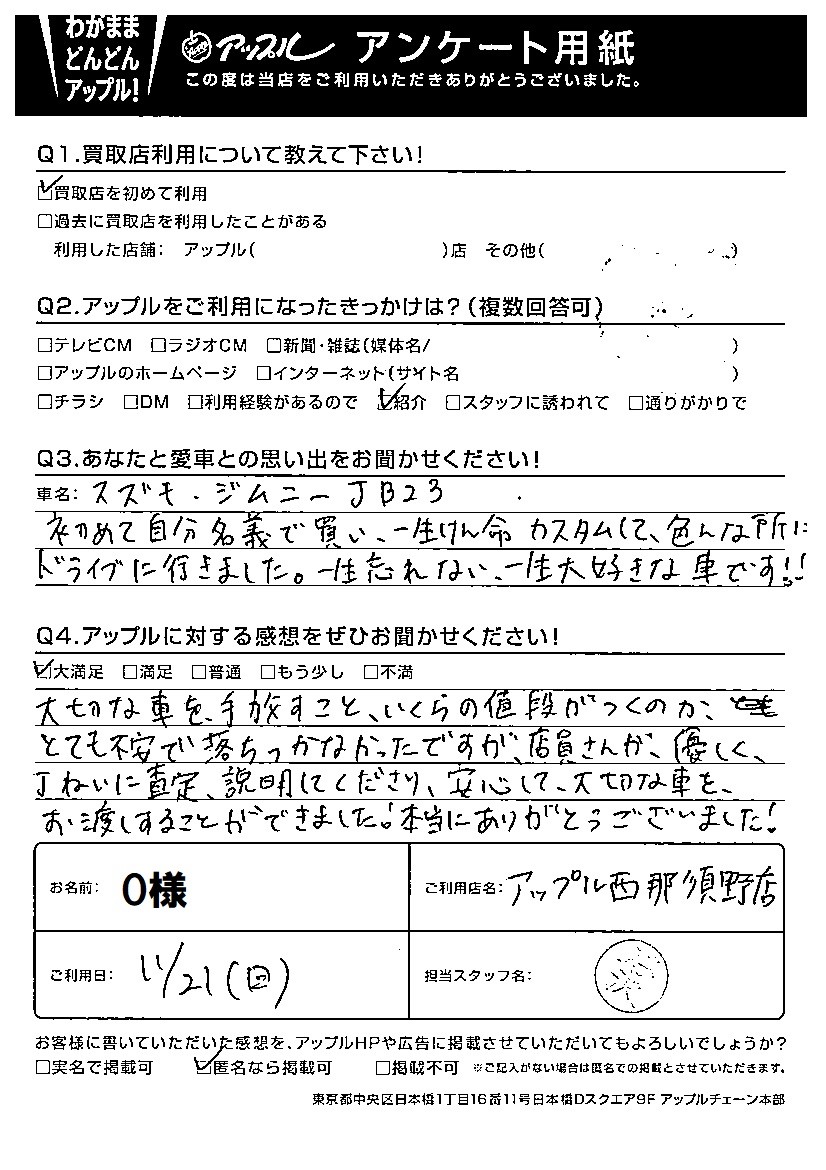 わがまま
どんどん
アップル!
アップル アンケート用紙
この度は当店をご利用いただきありがとうございました。
Q1.買取店利用について教えて下さい!
☑買取店を初めて利用
□過去に買取店を利用したことがある
利用した店舗: アップル( )店 その他( )
Q2.アップルをご利用になったきっかけは?(複数回答可)
□テレビCM □ラジオCM □新聞・雑誌(媒体名/ )
□アップルのホームページ □インターネット(サイト名 )
□チラシ □DM □利用経験があるので ☑紹介 □スタッフに誘われて □通りがかりで
Q3.あなたと愛車との思い出をお聞かせください!
車名: スズキ・ジムニー JB23
初めて自分名義で買い、一生けん命 カスタムして、色んな所に
ドライブに行きました。一生忘れない、一生大好きな車です!!
Q4.アップルに対する感想をぜひお聞かせください!
☑大満足 □満足 □普通 □もう少し □不満
大切な車を、手放すこと、いくらの値段がつくのか、
とても不安で落ちつかなかったですが、店員さんが、優しく、
丁ねいに査定、説明してくださり、安心して、大切な車を、
お渡しすることができました!本当にありがとうございました!
お名前: O様
ご利用店名: アップル西那須野店
ご利用日: 11/21(日)
担当スタッフ名:
お客様に書いていただいた感想を、アップルHPや広告に掲載させていただいてもよろしいでしょうか?
□実名で掲載可 ☑匿名なら掲載可 □掲載不可 ※ご記入がない場合は匿名での掲載とさせていただきます。
東京都中央区日本橋1丁目16番11号日本橋Dスクエア9F アップルチェーン本部